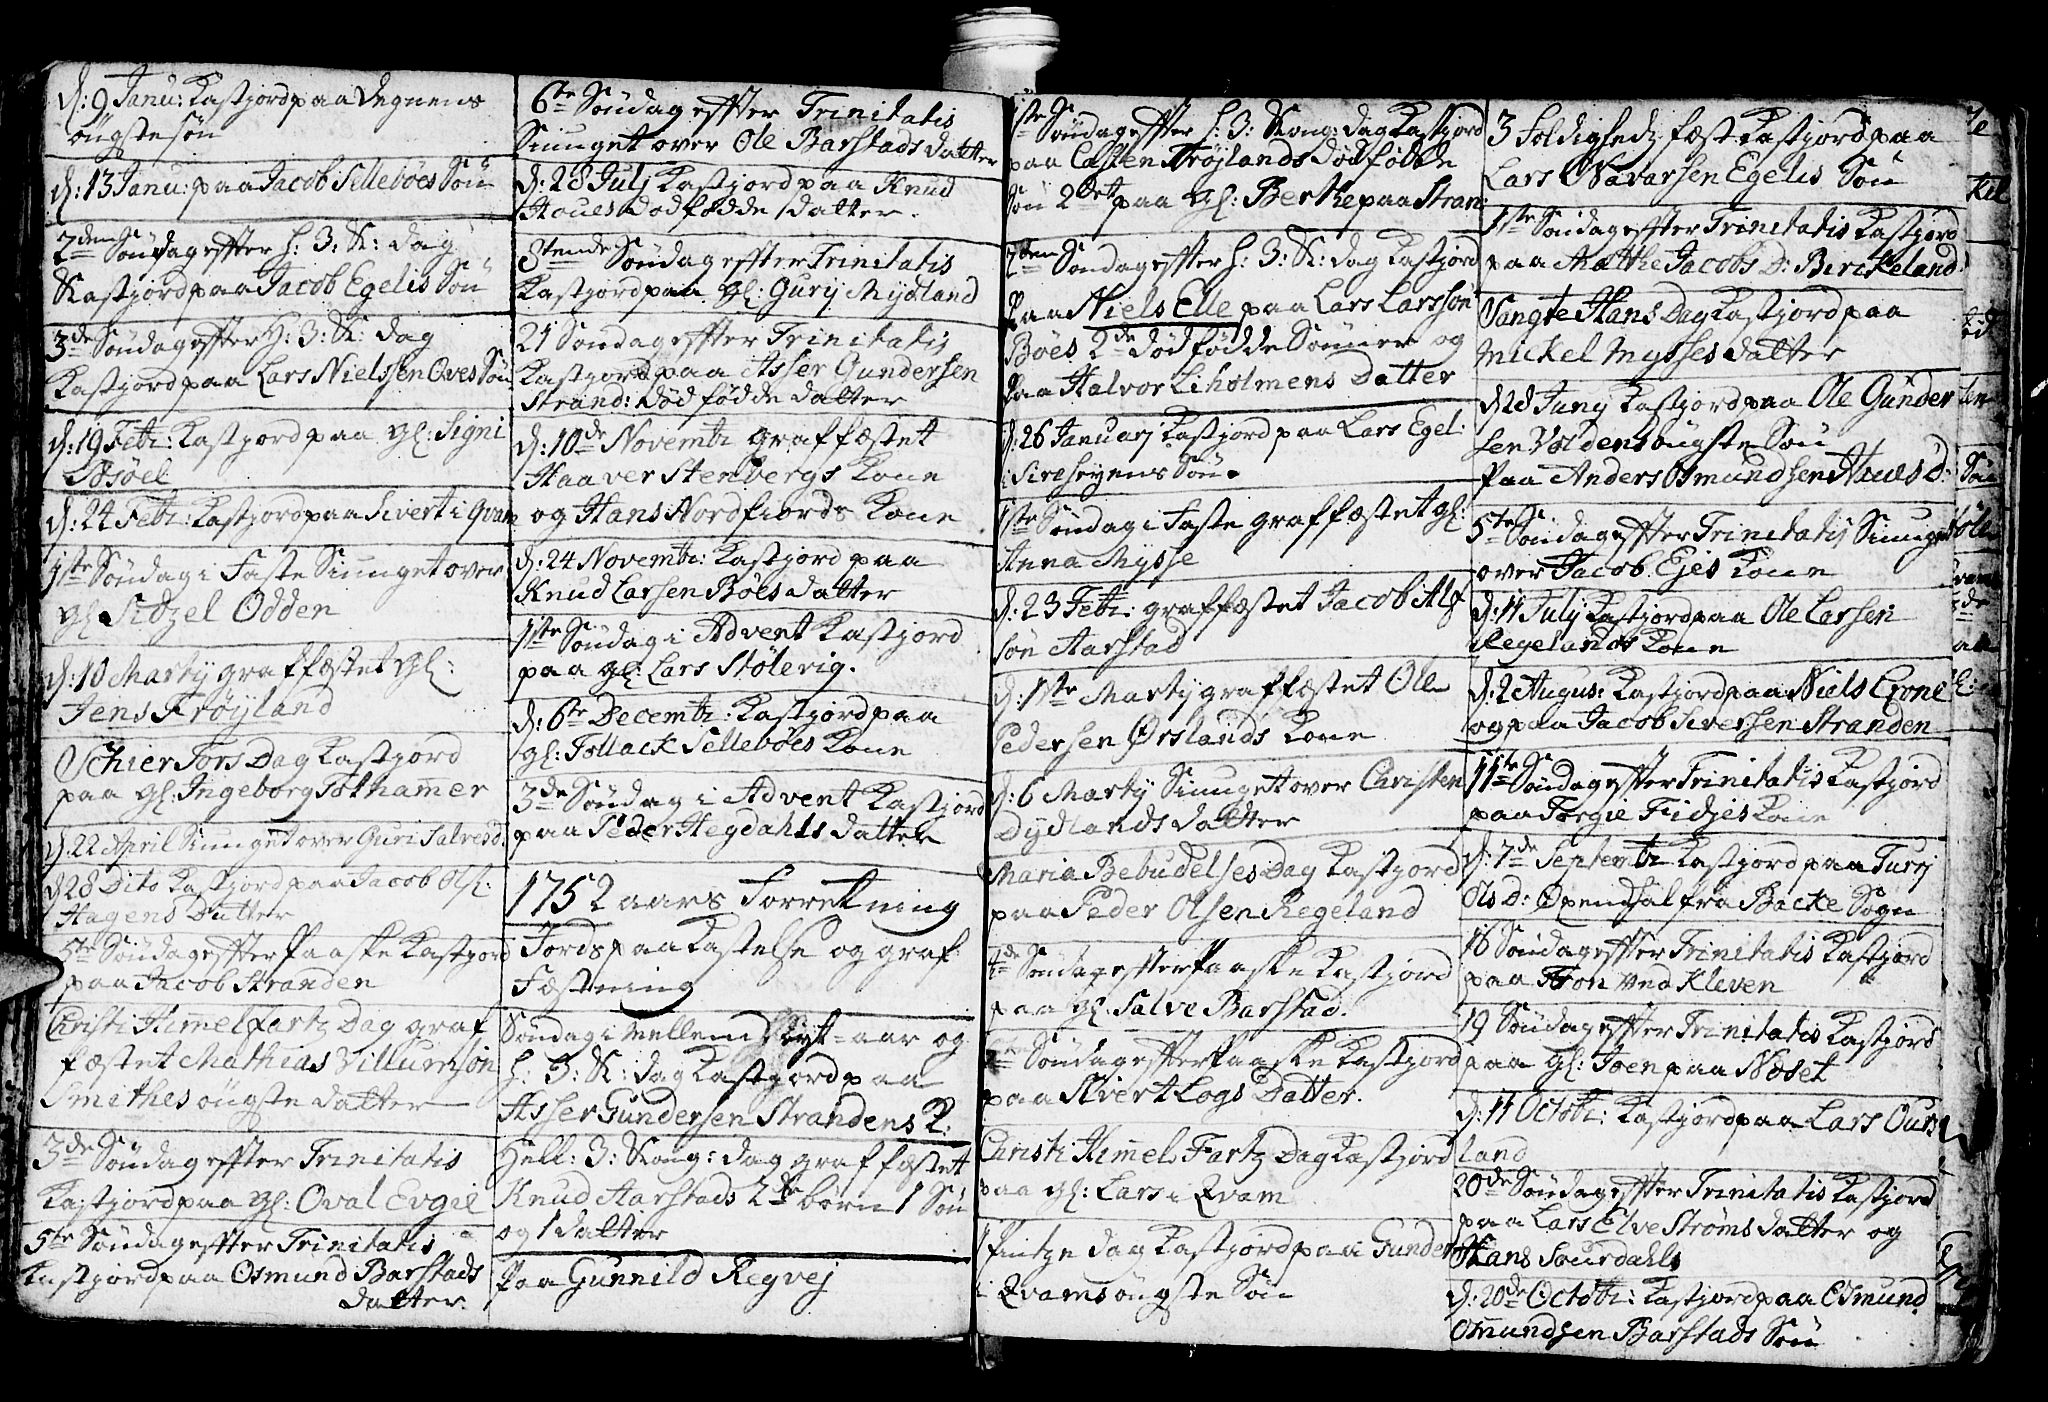 d: 9 Janu: Kastjord paa Degnens
øngste søn
d: 13 Janu: paa Jacob Sellebøes Søn
2den Søndag effter H: 3: K: dag
Kastjord paa Jacob Egelis Søn
3de Søndag effter H: 3: K: dag
Kastjord paa Lars Nielssen Oves Søn
d: 19 Febr: Kastjord paa gl: Signi
Bsøel
d: 24 Febr: Kastjord paa Sivert i Qvam
1ste Søndag i Faste Siunget over
gl: Sidzel Odden
d: 10 Marty graffæstet gl:
Jens Frøyland
Schier Tors Dag Kastjord
paa gl: Ingeborg Tothammer
d: 22 April Siunget over Guri Salvesd:
d 28 Dito Kastjord paa Jacob Ols:
Hagens Datter
5te Søndag effter Paaske Kastjord
paa Jacob Stranden
Christi Himmelfartz Dag graf
fæstet Mathias Villumsøn
Smithes øngste datter
3de Søndag effter Trinitatis
Kastjord paa gl: Oval Evgie
5te Søndag effter Trinitatis
Kastjord paa Osmund Barstads
datter.
6te Søndag effter Trinitatis
Siunget over Ole Barstads datter
d: 28 Julj Kastjord paa Knud
Houes dødfødde datter.
8tende Søndag effter Trinitatis
Kastjord paa gl: Gurj Mydland
21 Søndag effter Trinitatis
Kastjord paa Asser Gundersen
Strand: dødfødde datter
d: 10de Novembr graffæstet
Haaver Stenbergs Kone
og Hans Nordfiords Kone
d: 24 Novembr: Kastjord paa
Knud Larsen Bøes datter
1ste Søndag i Advent Kastjord
paa gl: Lars Stølevig.
d: 6te Decembr: Kastjord paa
gl: Tollack Sellebøes Kone
3de Søndag i Advent Kastjord
paa Peder Hegdahls datter
1752 aars Forretning
Jords paa Kastelse og graf
Fæstning
Søndag i mellem Nyt=aar og
H: 3: K: dag Kastjord paa
Asser Gundersen Strandens K:
Hell: 3: Kong: dag graffæstet
Knud Aarstads 2de børn 1 Søn
og 1 datter
Paa Gunnild Regvej
1ste Søndag effter H: 3: Kong: dag Kastjord
paa Casten Frøylands dødfødde
Søn 2det paa gl: Berthe paa Stran:
2den Søndag effter H: 3: K: dag Kastjord
Paa Niels Elle paa Lars Larsson
Bøes 2de dødfødde Sønner og
Paa Halvor Liholmens Datter
d: 26 Januarj Kastjord paa Lars Egel:
i Sirehejens Søn.
1ste Søndag i Faste graffæstet gl:
Anna Mysse
d: 23 Febr: graffæstet Jacob Alf
søn Aarstad
d: 1ste Marty graffæstet Ole
Pedersen Ørslands Kone
d: 6 Marty Siunget over Christen
Dydlands datter
Maria Bebudelses Dag Kastjord
paa Peder Olsen Regeland
4de Søndag effter Paaske Kastjord
paa gl: Salve Barstad.
Søndag effter Paaske Kastjord
paa Sivert Logs Datter.
Christi Himmels Fartz Dag Kastjord
paa gl: Lars i Qvam
Pfintze dag Kastjord paa Gunder
i Qvams øngste Søn
3 Soldighedz fæst Kastjord paa
Lars Navarsen Egelis Søn
1ste Søndag effter Trinitatis Kastjord
paa Malthe Jacobs D: Birckeland.
Sangte Hans Dag Kastjord paa
Mickel Mysses datter
d 28 Junj Kastjord paa Ole Gunder
sen Voldens øngste Søn
Paa Anders Osmundsen Haues D:
5te Søndag effter Trinitatis Siunget
over Jacob Ejes Kone
d: 11 Julj Kastjord paa Ole Larsen
Regelands Kone
d: 2 Augus: Kastjord paa Niels Erone
og paa Jacob Siverssen Stranden
11te Søndag effter Trinitatis Kastjord
paa Torgie Fidjes Kone
d: 7de Septembr Kastjord paa Turj
Ols D: Øpendhal fra Backe Sogn
16 Søndag effter Trinitatis Kastjord
paa Tron ved Kleven
19 Søndag effter Trinitatis Kastjord
paa gl: Joen paa Nøset
d: 11 Octobr: Kastjord paa Lars Ours
land
20de Søndag effter Trinitatis Kastjord
paa Lars Elve Strøms datter og
Hans Suurdahls
d: 20de Octobr: Kastjord paa Osmund
Osmundsen Barstads Søn